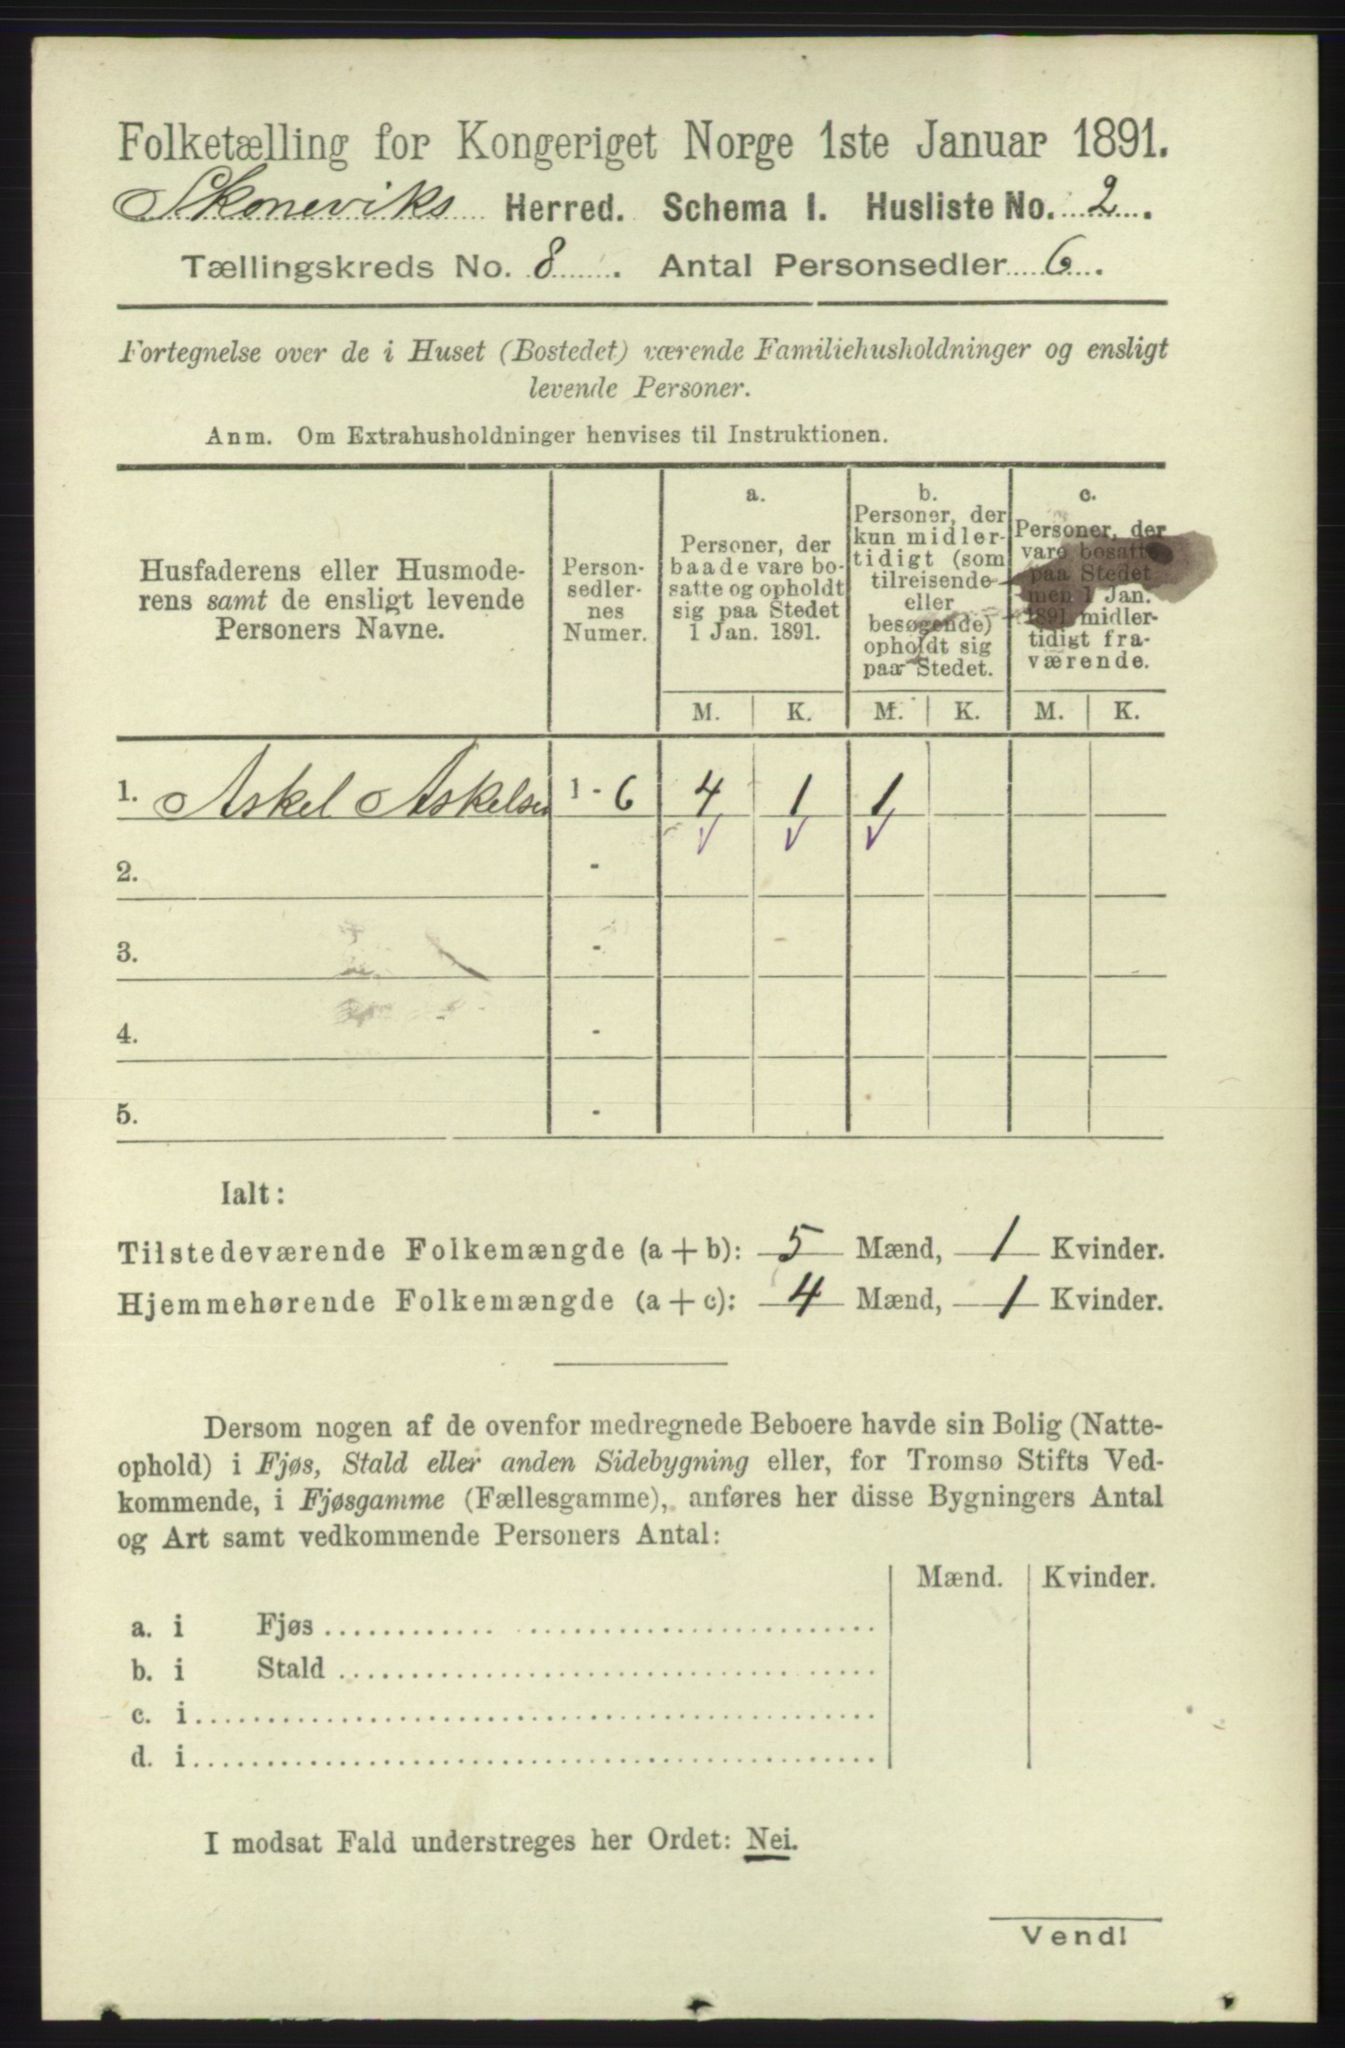 Folketælling for Kongeriget Norge 1ste Januar 1891.
Skoneviks Herred. Schema I. Husliste No. 2.
Tællingskreds No. 8. Antal Personsedler 6.
Fortegnelse over de i Huset (Bostedet) værende Familiehusholdninger og ensligt
levende Personer.
Anm. Om Extrahusholdninger henvises til Instruktionen.
Husfaderens eller Husmode-
rens samt de ensligt levende
Personers Navne.
Person-
sedler-
nes
Numer.
a.
Personer, der
baade vare bo-
satte og opholdt
sig paa Stedet
1 Jan. 1891.
b.
Personer, der
kun midler-
tidigt (som
tilreisende
eller
besøgende)
opholdt sig
paa Stedet.
c.
Personer, der
vare bosatte
paa Stedet
men 1 Jan.
1891 midler-
tidigt fra-
værende.
M. K. M. K. M. K.
1. Askel Askelsen 1 - 6 4 1 1
2. -
3. -
4. -
5. -
Ialt:
Tilstedeværende Folkemængde (a + b): 5 Mænd, 1 Kvinder.
Hjemmehørende Folkemængde (a + c): 4 Mænd, 1 Kvinder.
Dersom nogen af de ovenfor medregnede Beboere havde sin Bolig (Natte-
ophold) i Fjøs, Stald eller anden Sidebygning eller, for Tromsø Stifts Ved-
kommende, i Fjøsgamme (Fællesgamme), anføres her disse Bygningers Antal
og Art samt vedkommende Personers Antal:
Mænd. Kvinder.
a. i Fjøs
b. i Stald
c. i
d. i
I modsat Fald understreges her Ordet: Nei.
Vend!